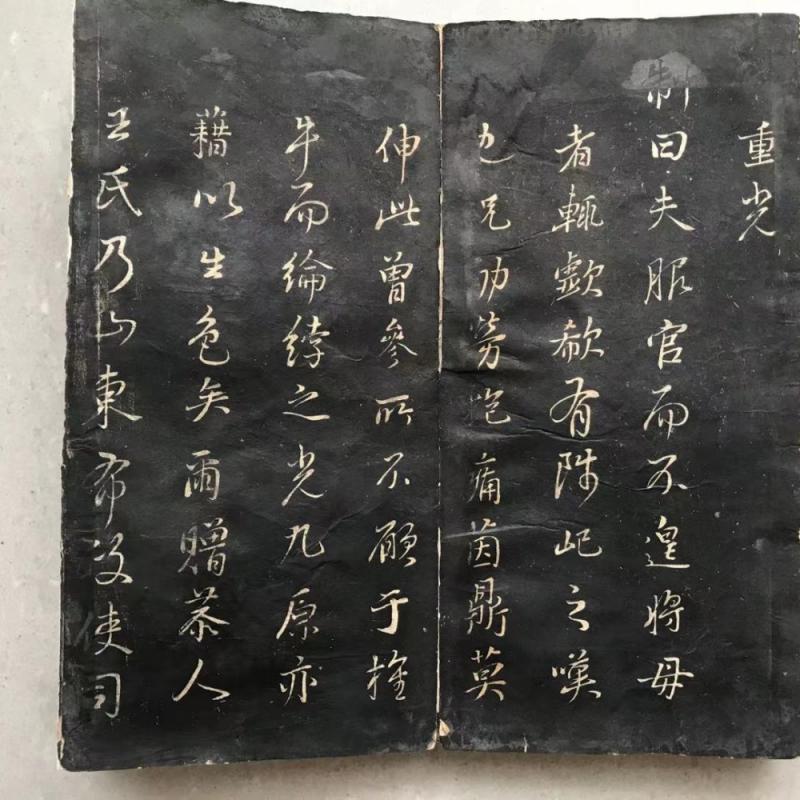 重光
制曰夫服官而不遑將毋
者輒歔欷有陟屺之嘆
也兄劬勞抱痛茵鼎莫
伸此曾參所不願于椎
牛而綸綍之光九原亦
藉以生色矣爾贈恭人
王氏乃山東布政使司